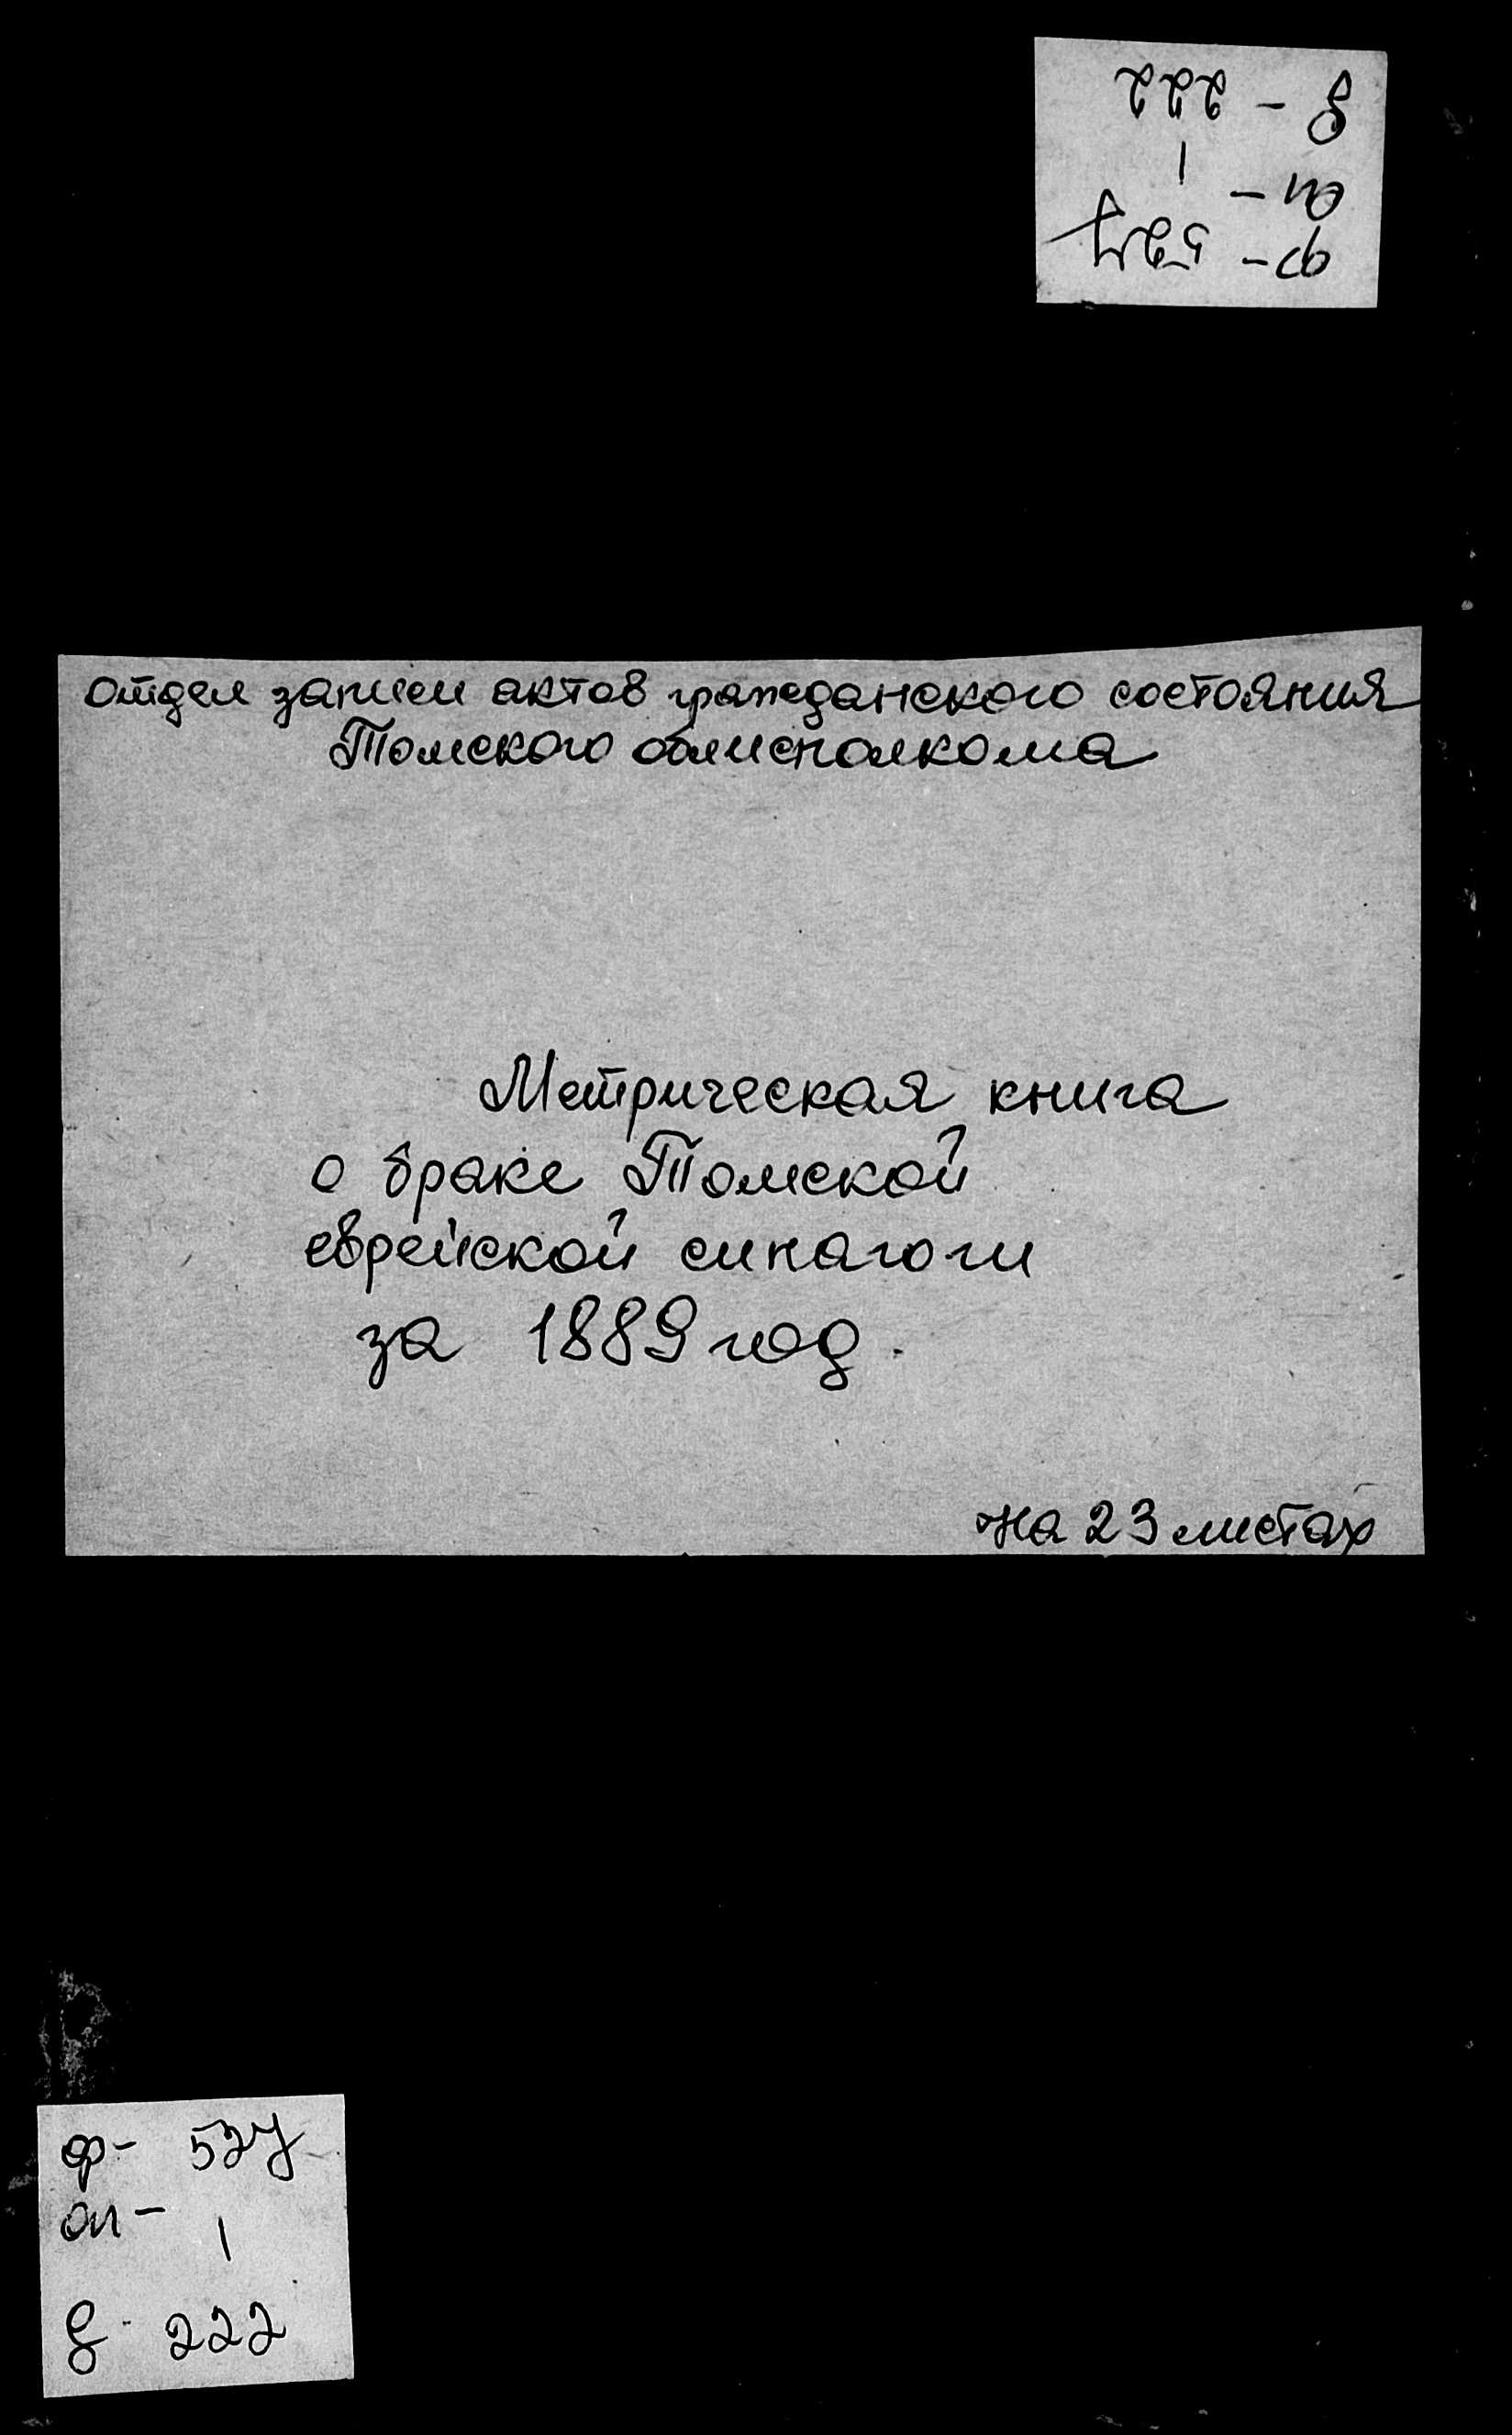 д - 222
оп -
1
ф - 527
отдел записи актов гражданского состояния
Томского облисполкома
Метрическая книга
о браке Томской
еврейской синагоги
за 1889 год.
на 23 листах
ф- 527
оп -
1
д - 222